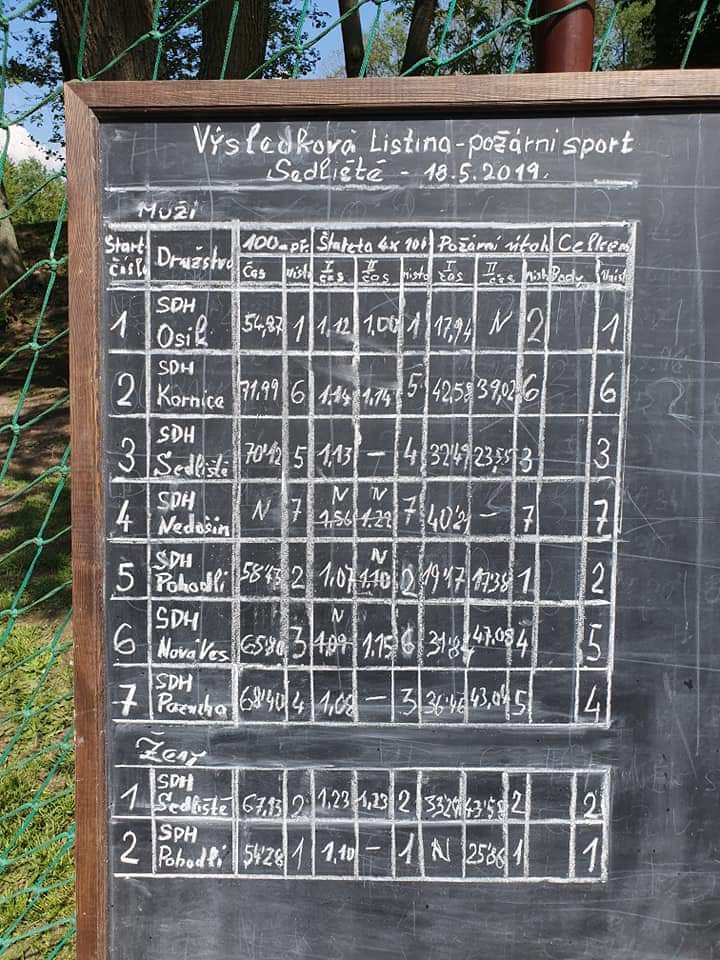 Výsledková Listina - požární sport
Sedliště - 18.5.2019.
Muži
Start. číslo Družstvo 100m př. Štafeta 4x100 Požární útok Celkem
čas místo I čas II čas místo I čas II čas místo Body Umíst
1 SDH Osík 54,87 1 1,12 1,00 1 17,94 N 2 1
2 SDH Kornice 71,99 6 1,14 1,14 5 42,58 39,02 6 6
3 SDH Sedliště 70'12 5 1,13 - 4 32'49 23,55 3 3
4 SDH Nedošín N 7 N 1,56 N 1,22 7 40'2 - 7 7
5 SDH Pohodlí 58'43 2 1,07 N 1,10 2 19'47 17'38 1 2
6 SDH Nová Ves 65'80 3 N 1,09 1,15 6 31'84 47,08 4 5
7 SDH Pazucha 68'40 4 1,08 - 3 36'46 43,04 5 4
Ženy
1 SDH Sedliště 67,13 2 1,23 1,23 2 33'29 43'58 2 2
2 SDH Pohodlí 54'28 1 1,10 - 1 N 25'86 1 1